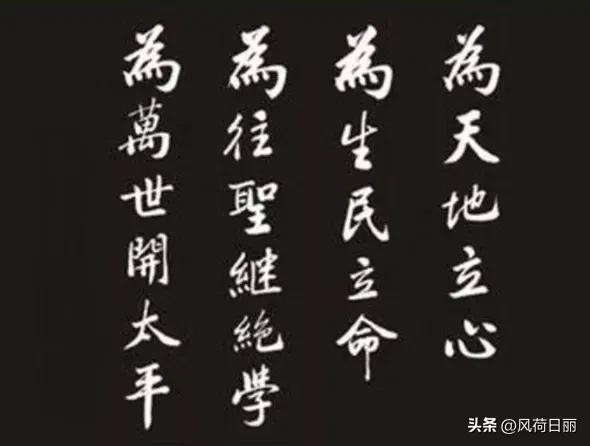 為天地立心
為生民立命
為往聖繼絶學
為萬世開太平
头条 @风荷日丽